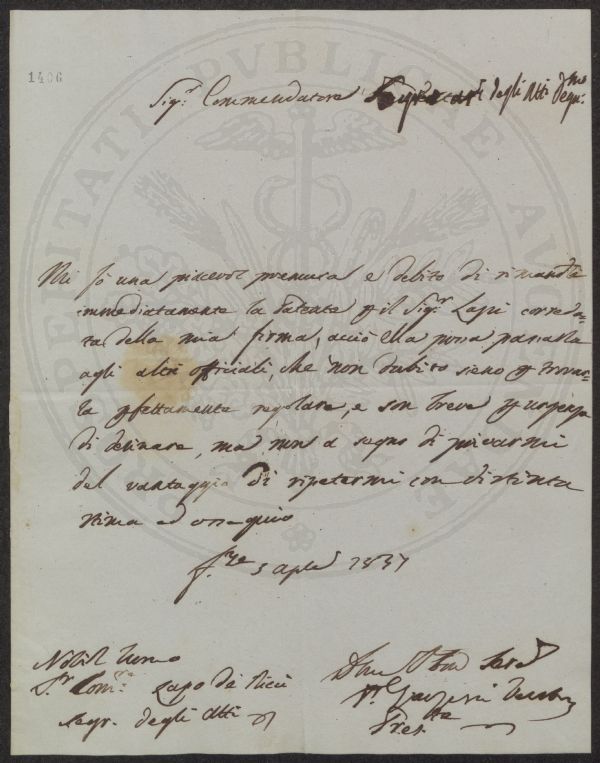 1406
Sig.r Commendatore Segretari degli Atti
Mi fò una piacevol premura e debito di rimandare
immediatamente la Patente p il Sig.r Lapi correda-
ta della mia firma, acciò ella possa passarla
agli altri officiali, che non dubito sieno p trovar-
la pfettamente regolare, e son breve p urgenza
di desinare, ma non a segno di privarmi
del vantaggio di ripetermi con distinta
stima ed ossequio
3 Aple 1837
Nobil Uomo
Sr Comre Lapo de Ricci
Segr. degli Atti
Dmo Obbo Serv
Pres.te